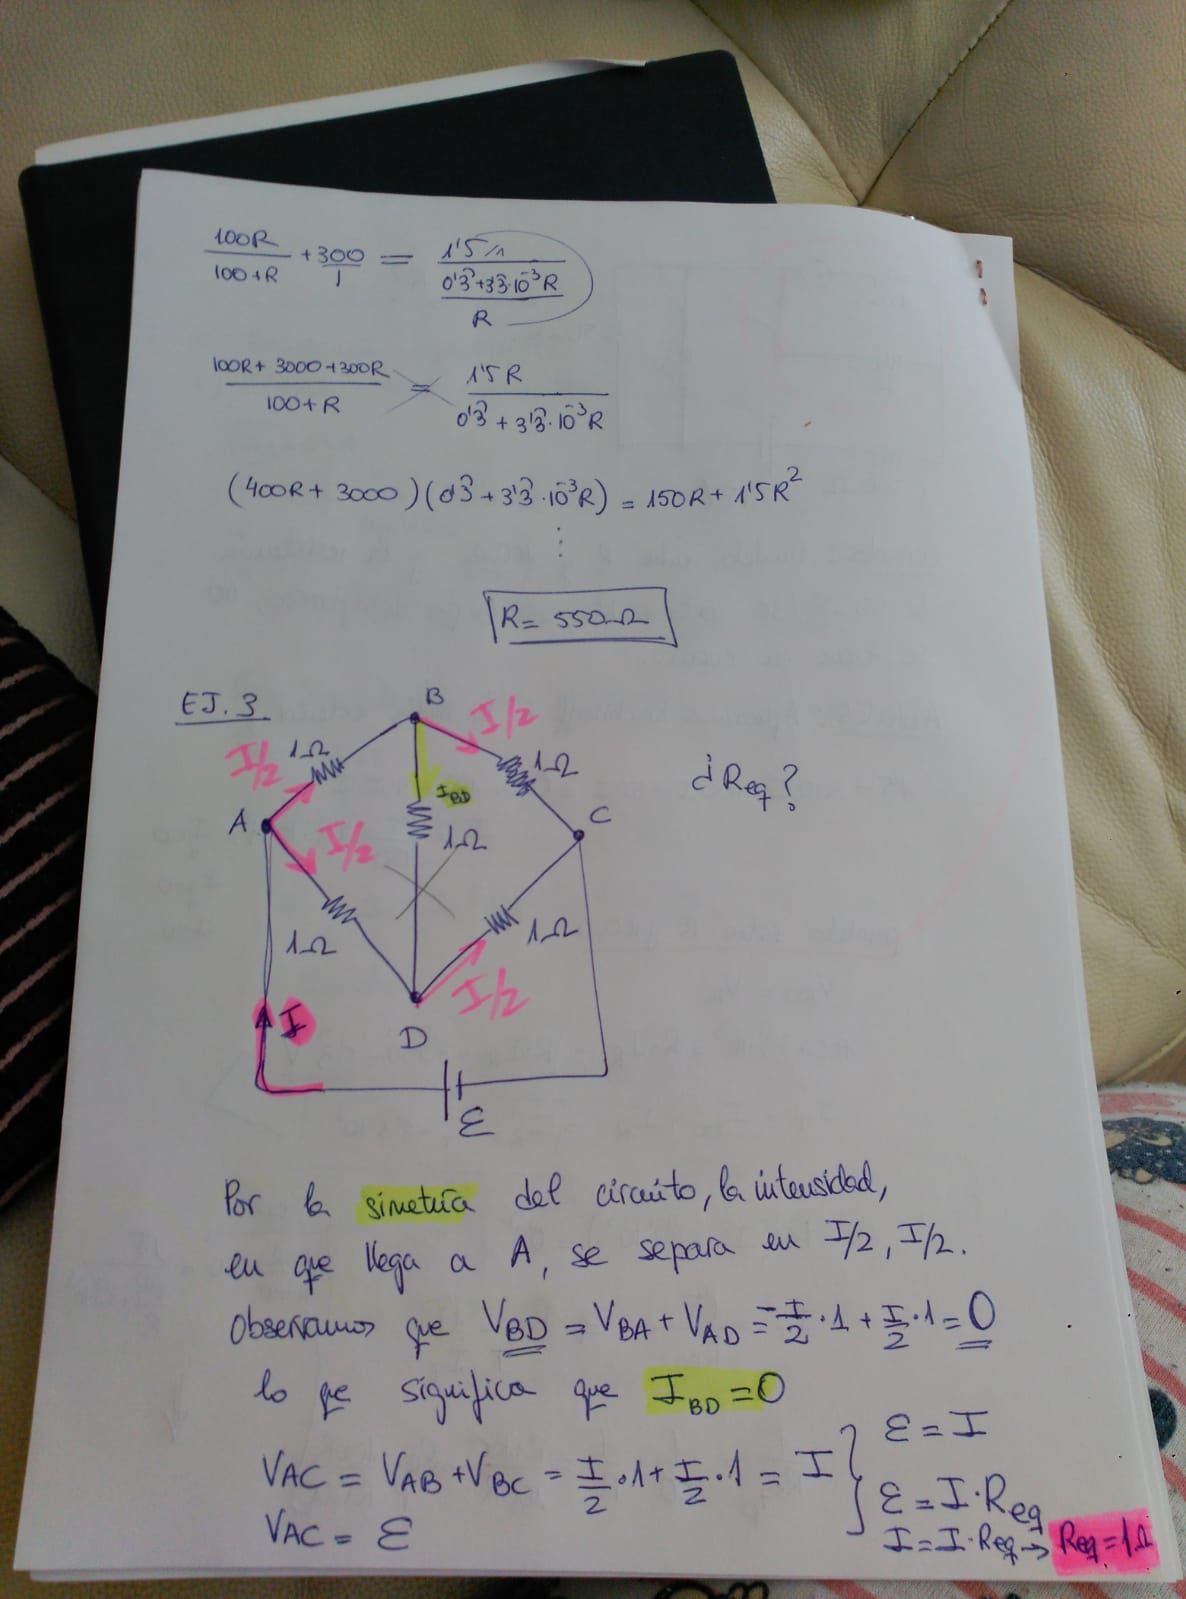 100R / 100+R + 300 / 1 = 1'5 / 1 / 0'3̂ + 3'3̂·10⁻³R / R
100R + 3000 + 300R / 100 + R = 1'5 R / 0'3̂ + 3'3̂·10⁻³R
(400R + 3000)(0'3̂ + 3'3̂·10⁻³R) = 150R + 1'5R²
⋮
R = 550Ω
EJ. 3
B
I/2
I/2 1Ω
1Ω
¿Req?
I_BD
A
C
I/2
1Ω
1Ω
1Ω
I/2
I
D
ε
Por la simetría del circuito, la intensidad,
en que llega a A, se separa en I/2, I/2.
Observamos que V_BD = V_BA + V_AD = -I/2 · 1 + I/2 · 1 = 0
lo que significa que I_BD = 0
V_AC = V_AB + V_BC = I/2 · 1 + I/2 · 1 = I } ε = I
V_AC = ε
ε = I · Req
I = I · Req → Req = 1Ω